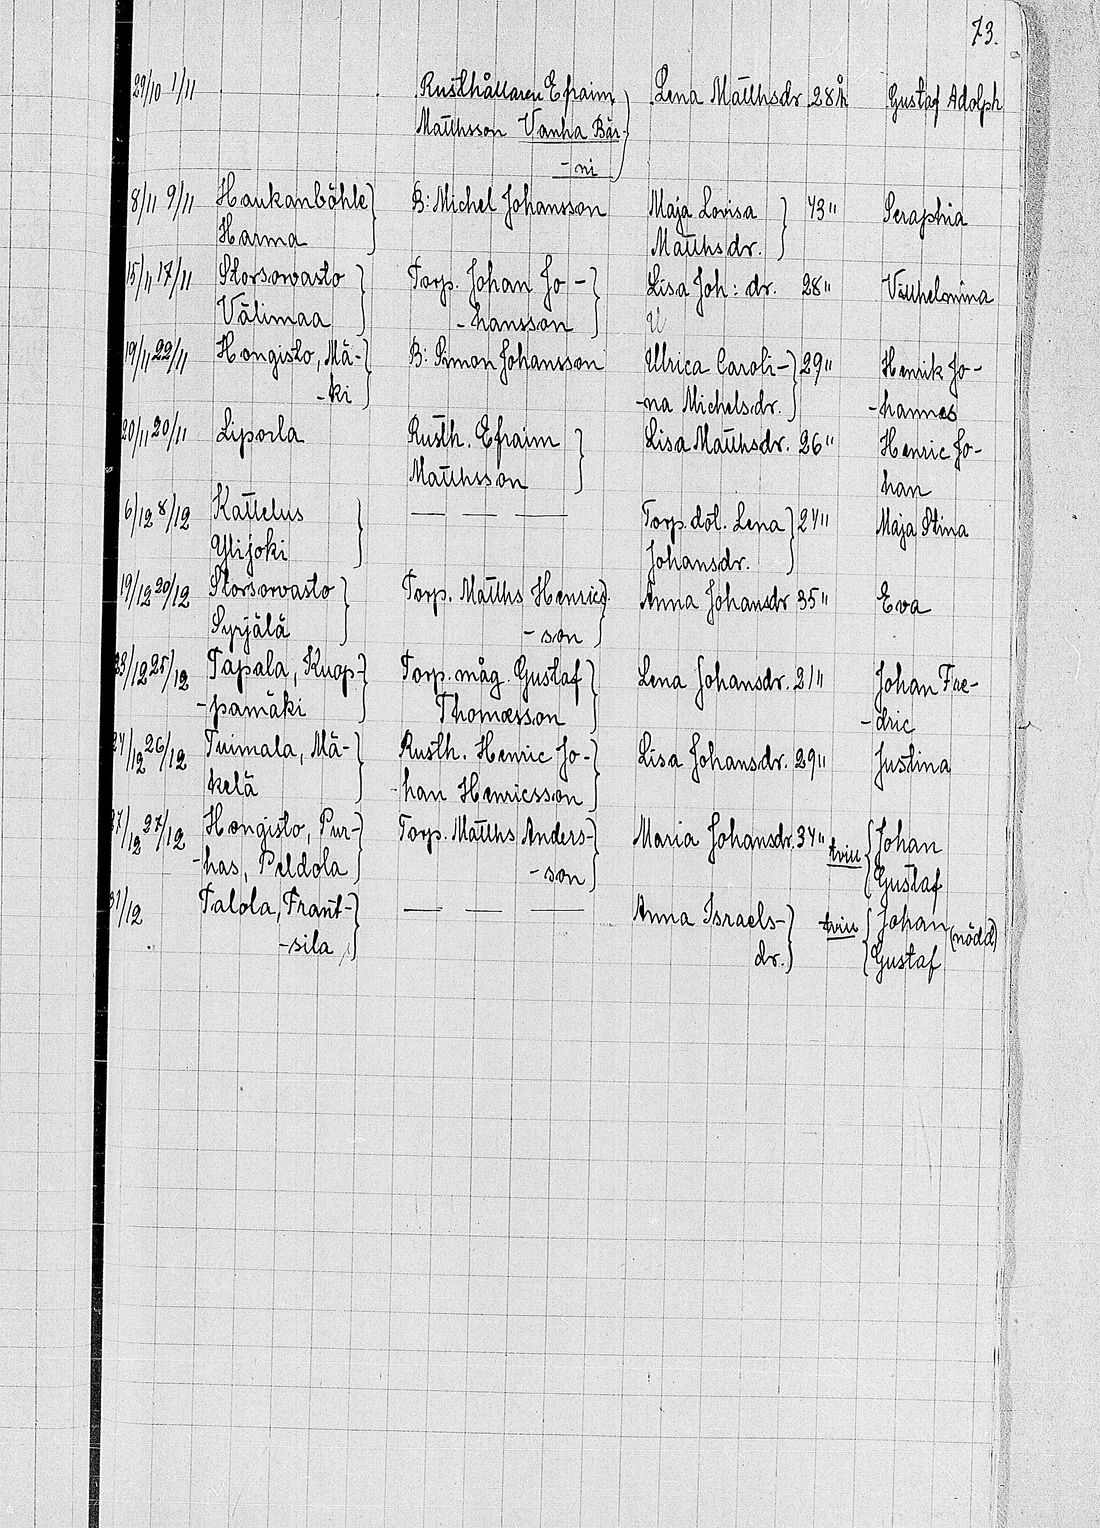 73.
29/10 1/11 Rusthållaren Efraim Lena Matthsdr. 28 år Gustaf Adolph
Matthsson Vanha Bär-
-ni
8/11 9/11 Haukanböhle B: Michel Johansson Maja Lovisa 43" Seraphia
Harma Matthsdr.
15/11 17/11 Storsorvasto Torp. Johan Jo- Lisa Joh: dr. 28" Villhelmina
Välimaa -hansson U
19/11 22/11 Hongisto, Mä- B: Simon Johansson Ulrica Caroli- 29" Henrik Jo-
-ki -na Michelsdr. -hannes
20/11 20/11 Liporla Rusth. Efraim Lisa Matthsdr. 26" Henric Jo-
Matthsson han
6/12 8/12 Kattelus — — — Torp. dot. Lena 24" Maja Stina
Ylijoki Johansdr.
19/12 20/12 Storsorvasto Torp. Matths Henrics- Anna Johansdr 35" Eva
Syrjälä -son
23/12 25/12 Tapala, Kuop- Torp. måg Gustaf Lena Johansdr. 21" Johan Fre-
-pamäki Thomasson -dric
24/12 26/12 Tuimala, Mä- Rusth. Henric Jo- Lisa Johansdr. 29" Justina
kelä -han Henricsson
27/12 27/12 Hongisto, Pur- Torp. Matths Anders- Maria Johansdr. 34" tvill Johan
-has, Peldola -son Gustaf
31/12 Talola, Frant- — — — Anna Israels- tvill Johan (nödd)
-sila dr. Gustaf